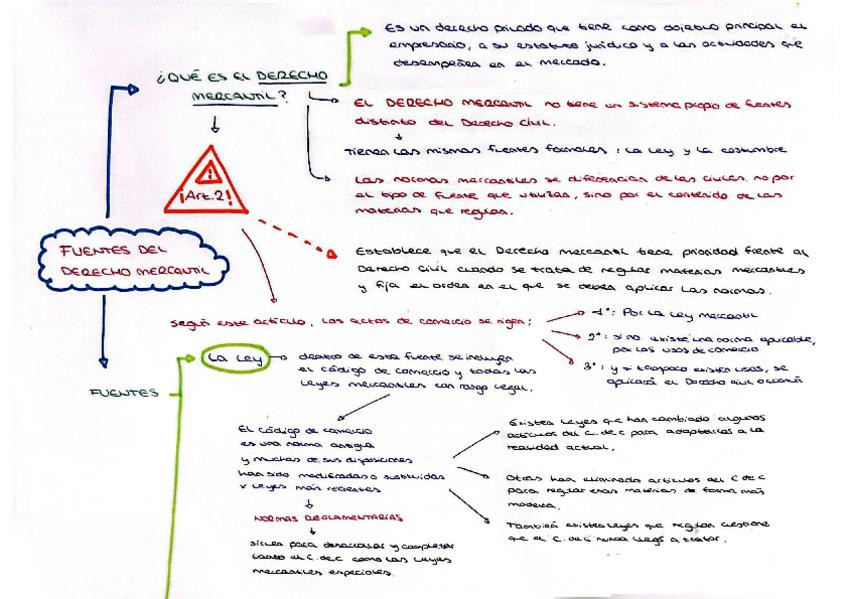 Es un derecho privado que tiene como objetivo principal el
empresario, a su estatuto jurídico y a las actividades que
desempeñen en el mercado.
¿QUÉ ES EL DERECHO
MERCANTIL?
EL DERECHO MERCANTIL no tiene un sistema propio de fuentes
distinto del Derecho Civil.
Tienen las mismas fuentes formales: la ley y la costumbre
Las normas mercantiles se diferencian de las civiles, no por
el tipo de fuente que utilizan, sino por el contenido de las
materias que regulan.
¡Art.2!
FUENTES DEL
DERECHO MERCANTIL
Establece que el Derecho mercantil tiene prioridad frente al
Derecho Civil cuando se trata de regular materias mercantiles
y fija el orden en el que se deben aplicar las normas.
Según este artículo, los actos de comercio se rigen:
1º: Por la Ley mercantil
2º: si no existe una norma aplicable,
por los usos de comercio
3º: y si tampoco existen usos, se
aplicará el Derecho civil común
FUENTES
La Ley
dentro de esta fuente se incluyen
el código de comercio y todas las
leyes mercantiles con rango legal.
El código de comercio
es una norma antigua
y muchas de sus disposiciones
han sido modificadas o sustituidas
x leyes más recientes
NORMAS REGLAMENTARIAS
sirven para desarrollar y completar
tanto el C. de C como las leyes
mercantiles especiales.
Existen leyes que han cambiado algunos
artículos del C. de C para adaptarlos a la
realidad actual.
Otras han eliminado artículos del C de C
para regular esas materias de forma más
moderna.
También existen leyes que regulan cuestiones
que el C. de C nunca llegó a tratar.